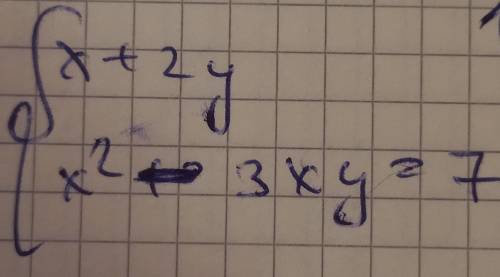 x + 2y
x² - 3xy = 7